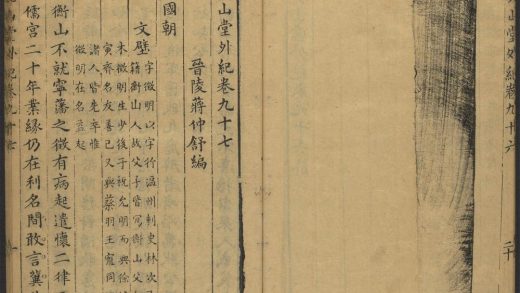 山堂外紀卷九十六
二十
山堂外紀卷九十七
晉陵蔣仲舒編
國朝
文璧
字徵明以字行溫州刺史林次
籍衡山人故父子皆寫衡山父
木徵明生少後于祝允明而與徐
寅齊名友善已又與蔡羽王寵同
諸人皆先卒惟
徵明在名益起
衡山不就寧藩之徵有病起遣懷二律
儒宮二十年業緣仍在利名間敢言冀